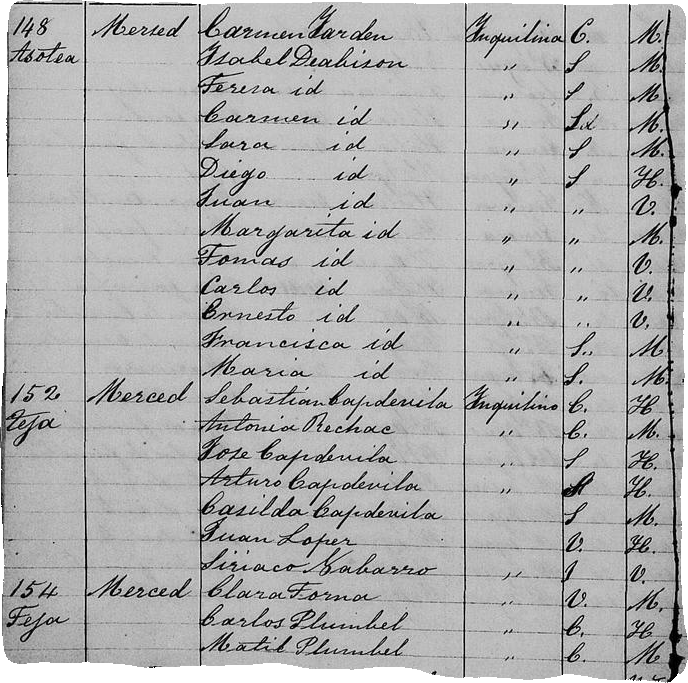 148 Mersed Carmen Jarden Inquilina C. M.
Asotea Isabel Deabison " S M.
Teresa id " S M
Carmen id " M.
Sara id " S M.
Diego id " S H.
Juan id " " V.
Margarita id " " M.
Tomas id " " V.
Carlos id " " V.
Ernesto id " " V.
Francisca id " S. M
Maria id " S. M.
152 Merced Sebastian Capdevila Inquilino C. H
Teja Antonia Rechac " C. M.
Jose Capdevila " S H.
Arturo Capdevila " H.
Casilda Capdevila S M.
Juan Loper V. H.
Siriaco Nabarro " V.
154 Merced Clara Torna " V. M.
Teja Carlos Plumbel " C. H
Matil Plumbel " C. M